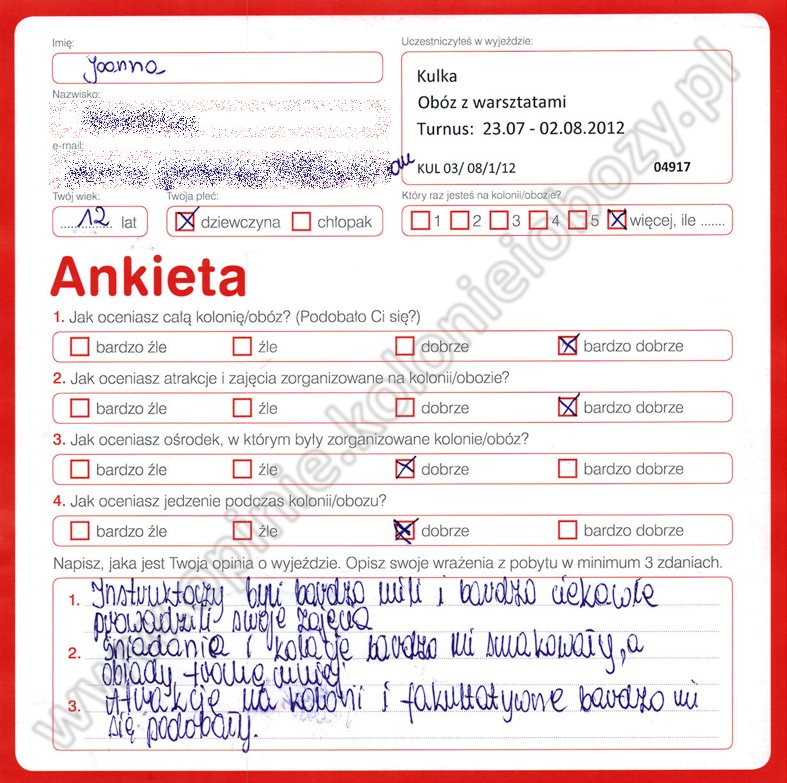 Imię:
Joanna
Uczestniczyłeś w wyjeździe:
Kulka
Obóz z warsztatami
Turnus: 23.07 - 02.08.2012
KUL 03/ 08/1/12 04917
Nazwisko:
e-mail:
Twój wiek:
12 lat
Twoja płeć:
dziewczyna chłopak
Który raz jesteś na kolonii/obozie?
1 2 3 4 5 więcej, ile .......
Ankieta
1. Jak oceniasz całą kolonię/obóz? (Podobało Ci się?)
bardzo źle źle dobrze bardzo dobrze
2. Jak oceniasz atrakcje i zajęcia zorganizowane na kolonii/obozie?
bardzo źle źle dobrze bardzo dobrze
3. Jak oceniasz ośrodek, w którym były zorganizowane kolonie/obóz?
bardzo źle źle dobrze bardzo dobrze
4. Jak oceniasz jedzenie podczas kolonii/obozu?
bardzo źle źle dobrze bardzo dobrze
Napisz, jaka jest Twoja opinia o wyjeździe. Opisz swoje wrażenia z pobytu w minimum 3 zdaniach.
1. Instruktorzy byli bardzo mili i bardzo ciekawie
prowadzili swoje zajęcia
2. Śniadania i kolacje bardzo mi smakowały, a
obiady trochę mniej.
3. Atrakcje na kolonii i fakultatywne bardzo mi
się podobały.
www.opinie.kolonieiobozy.pl